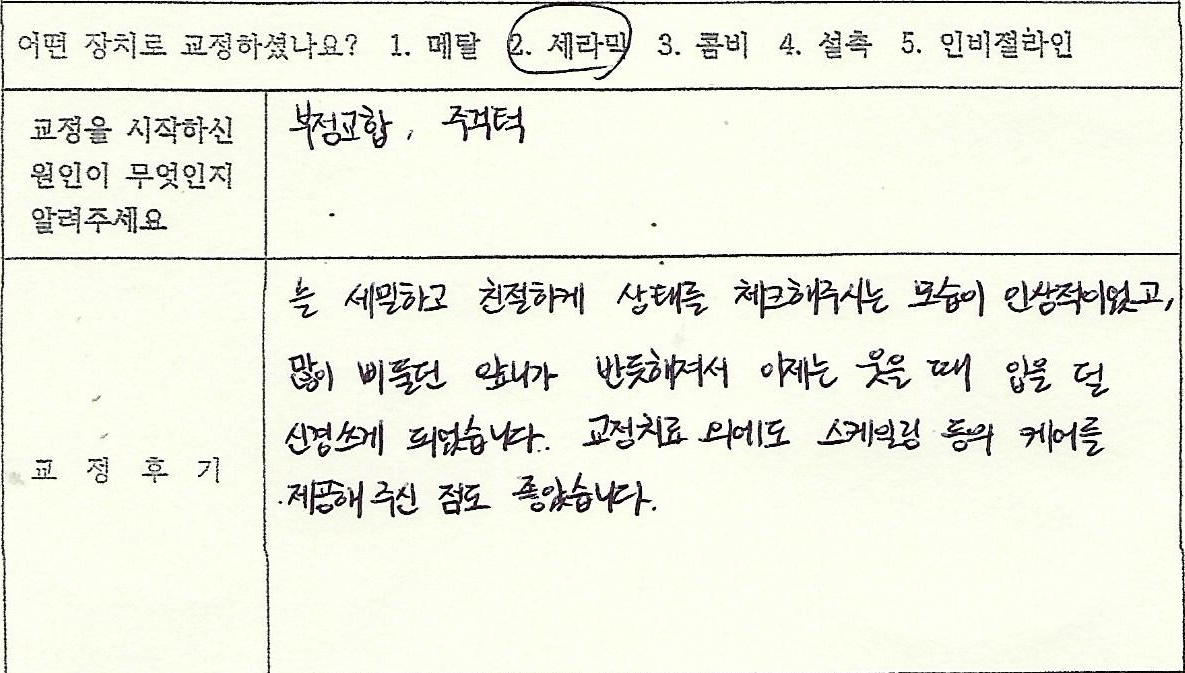 어떤 장치로 교정하셨나요? 1. 메탈 2. 세라믹 3. 콤비 4. 설측 5. 인비절라인
교정을 시작하신
원인이 무엇인지
알려주세요
부정교합, 주걱턱
교 정 후 기
늘 세밀하고 친절하게 상태를 체크해주시는 모습이 인상적이었고,
많이 삐뚤던 앞니가 반듯해져서 이제는 웃을 때 입을 덜
신경쓰게 되었습니다. 교정치료 외에도 스케일링 등의 케어를
제공해 주신 점도 좋았습니다.